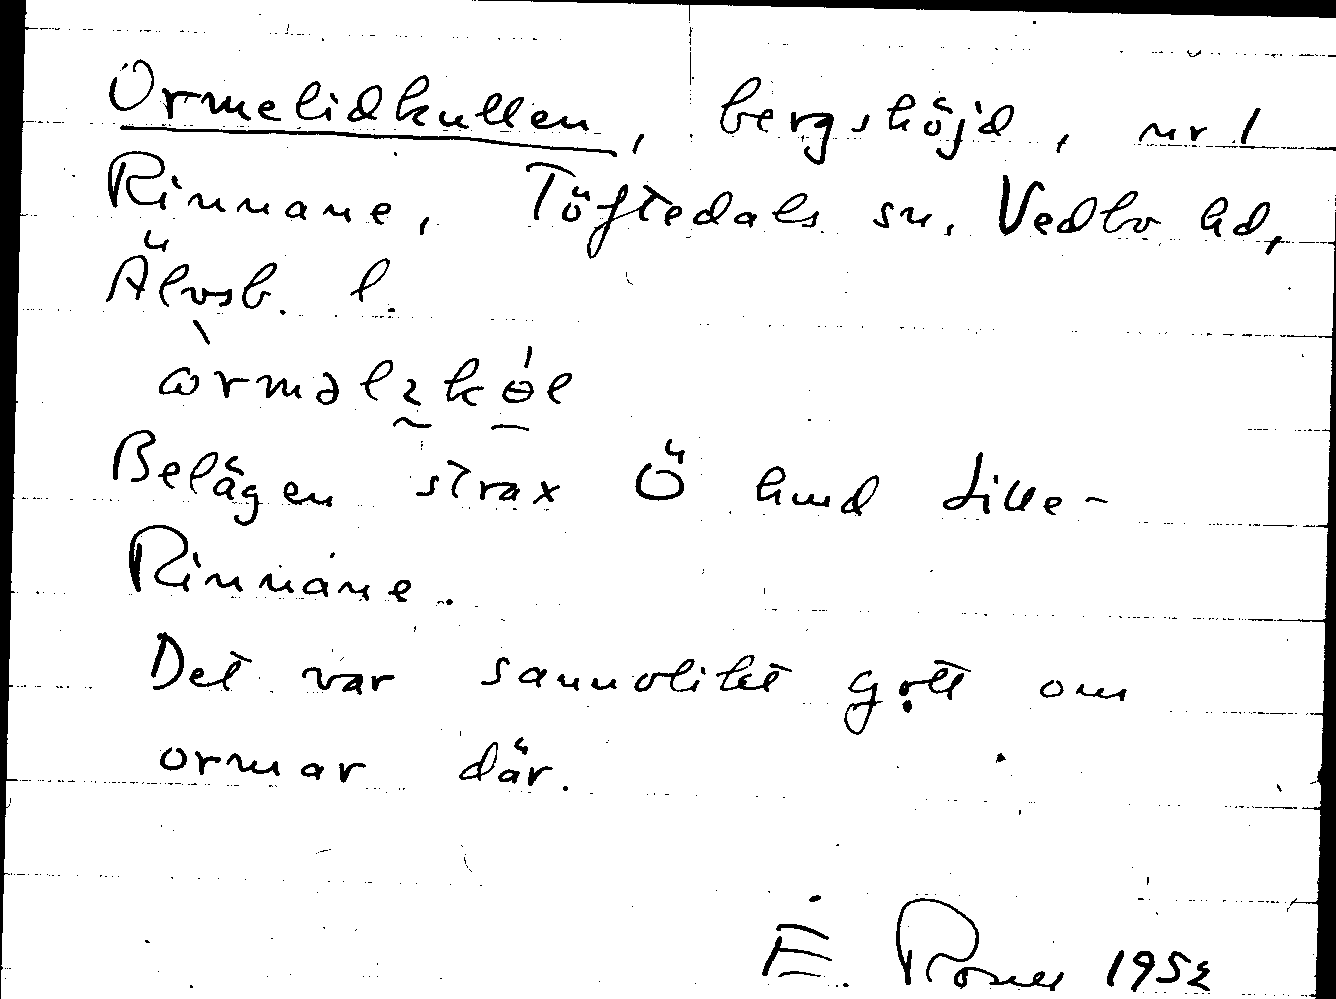 Ormelidkullen, bergshöjd, nr 1
Rinnane, Töftedals sn, Vedbo hd,
Älvsb. l.
Belägen strax Ö hmd Lille-
Rinnane.
Det var sannolikt gott om
ormar där.
E. 1952